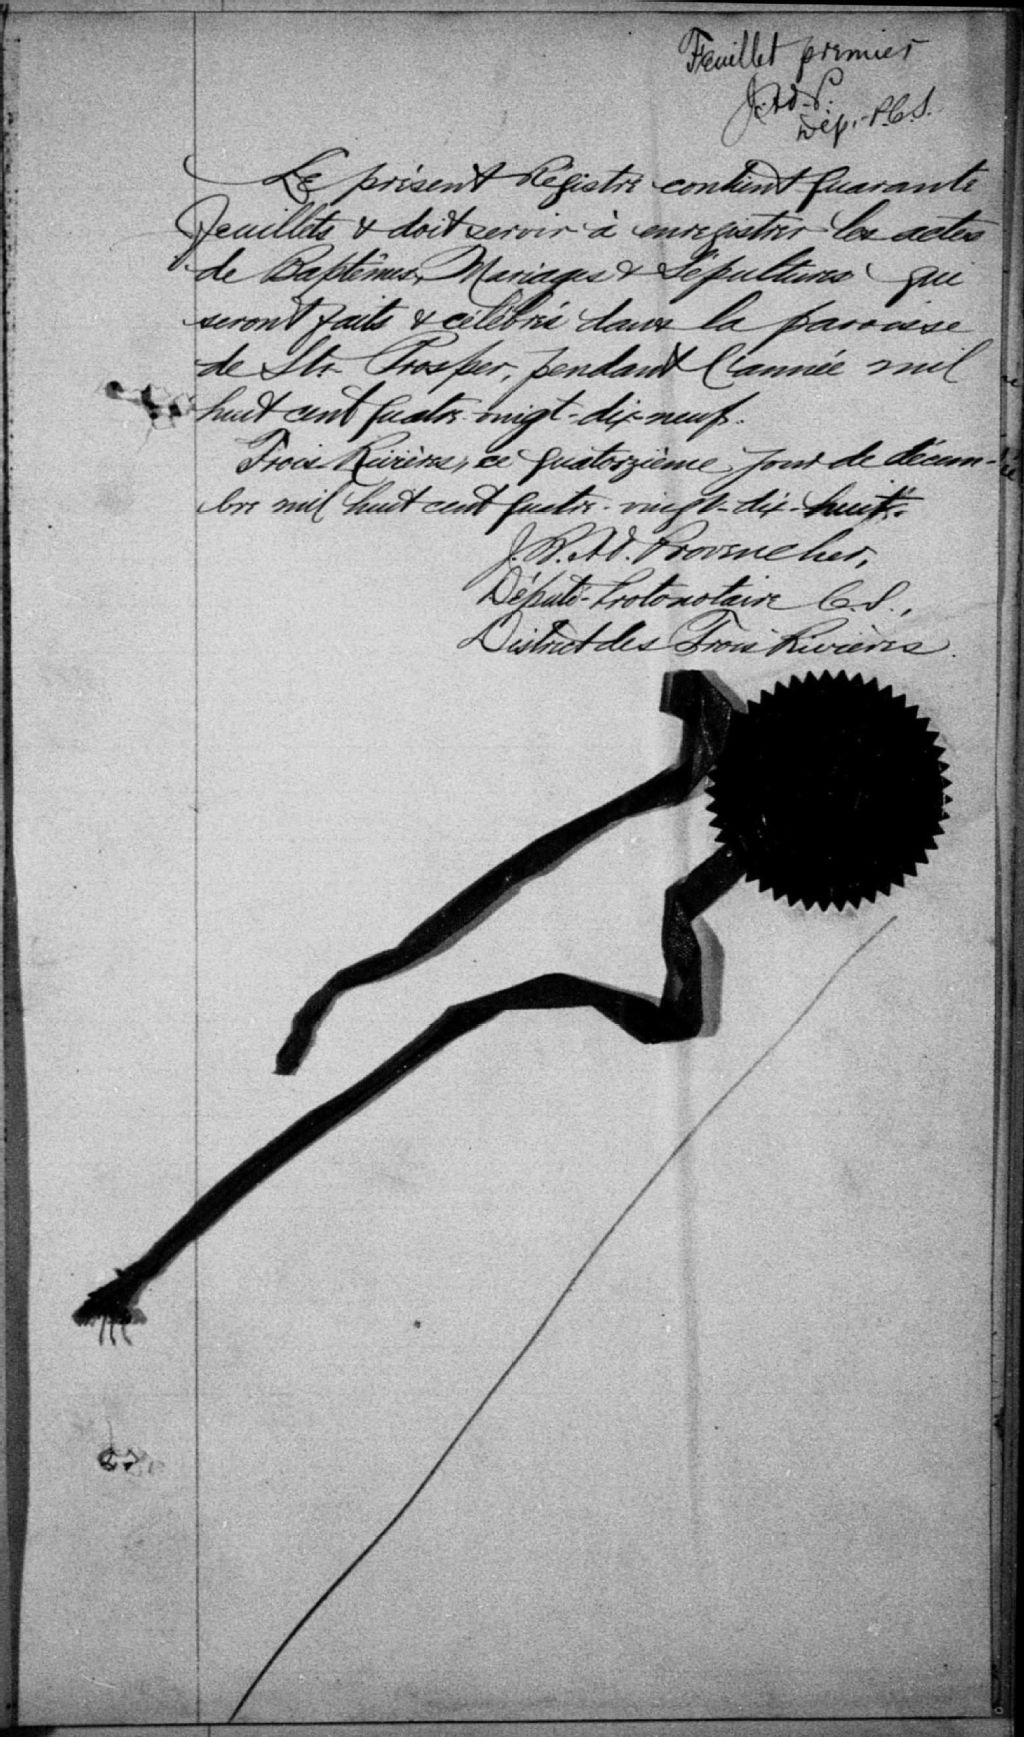 Feuillet premier
J. Ad. P.
Dép.-P.C.S.
Le présent Régistre contient quarante
feuillets & doit servir à enregistrer les actes
de Baptêmes, Mariages & Sépultures qui
seront faits & célébrés dans la paroisse
de Ste Prosper, pendant l'année mil
huit cent quatre-vingt-dix-neuf.
Trois-Rivières, ce quatorzième jour de décem-
bre mil huit cent quatre-vingt-dix-huit.
J. P. Ad. Provencher,
Député-Protonotaire C.S.,
District des Trois Rivières.